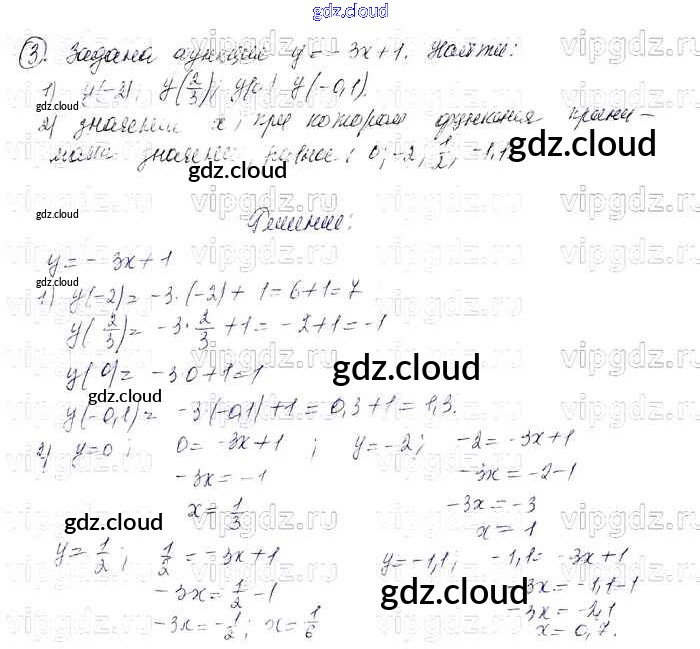 gdz.cloud
③. Задана функция y = - 3x + 1. Найти:
1) y(-2); y(2/3); y(0); y(-0,1).
2) значение x, при котором функция прини-
мает значение равное: 0; -2; 1/2; -1,1
gdz.cloud
Решение:
y = - 3x + 1
1) y(-2) = -3·(-2) + 1 = 6 + 1 = 7
y(2/3) = -3·2/3 + 1 = -2 + 1 = -1
y(0) = -3·0 + 1 = 1
gdz.cloud
y(-0,1) = -3·(-0,1) + 1 = 0,3 + 1 = 1,3.
2) y = 0; 0 = -3x + 1; y = -2; -2 = -3x + 1
-3x = -1 -3x = -2 - 1
x = 1/3 -3x = -3
x = 1
gdz.cloud
y = 1/2; 1/2 = -3x + 1 y = -1,1; -1,1 = -3x + 1
-3x = 1/2 - 1 -3x = -1,1 - 1
-3x = -1/2; x = 1/6 -3x = -2,1
x = 0,7.
gdz.cloud